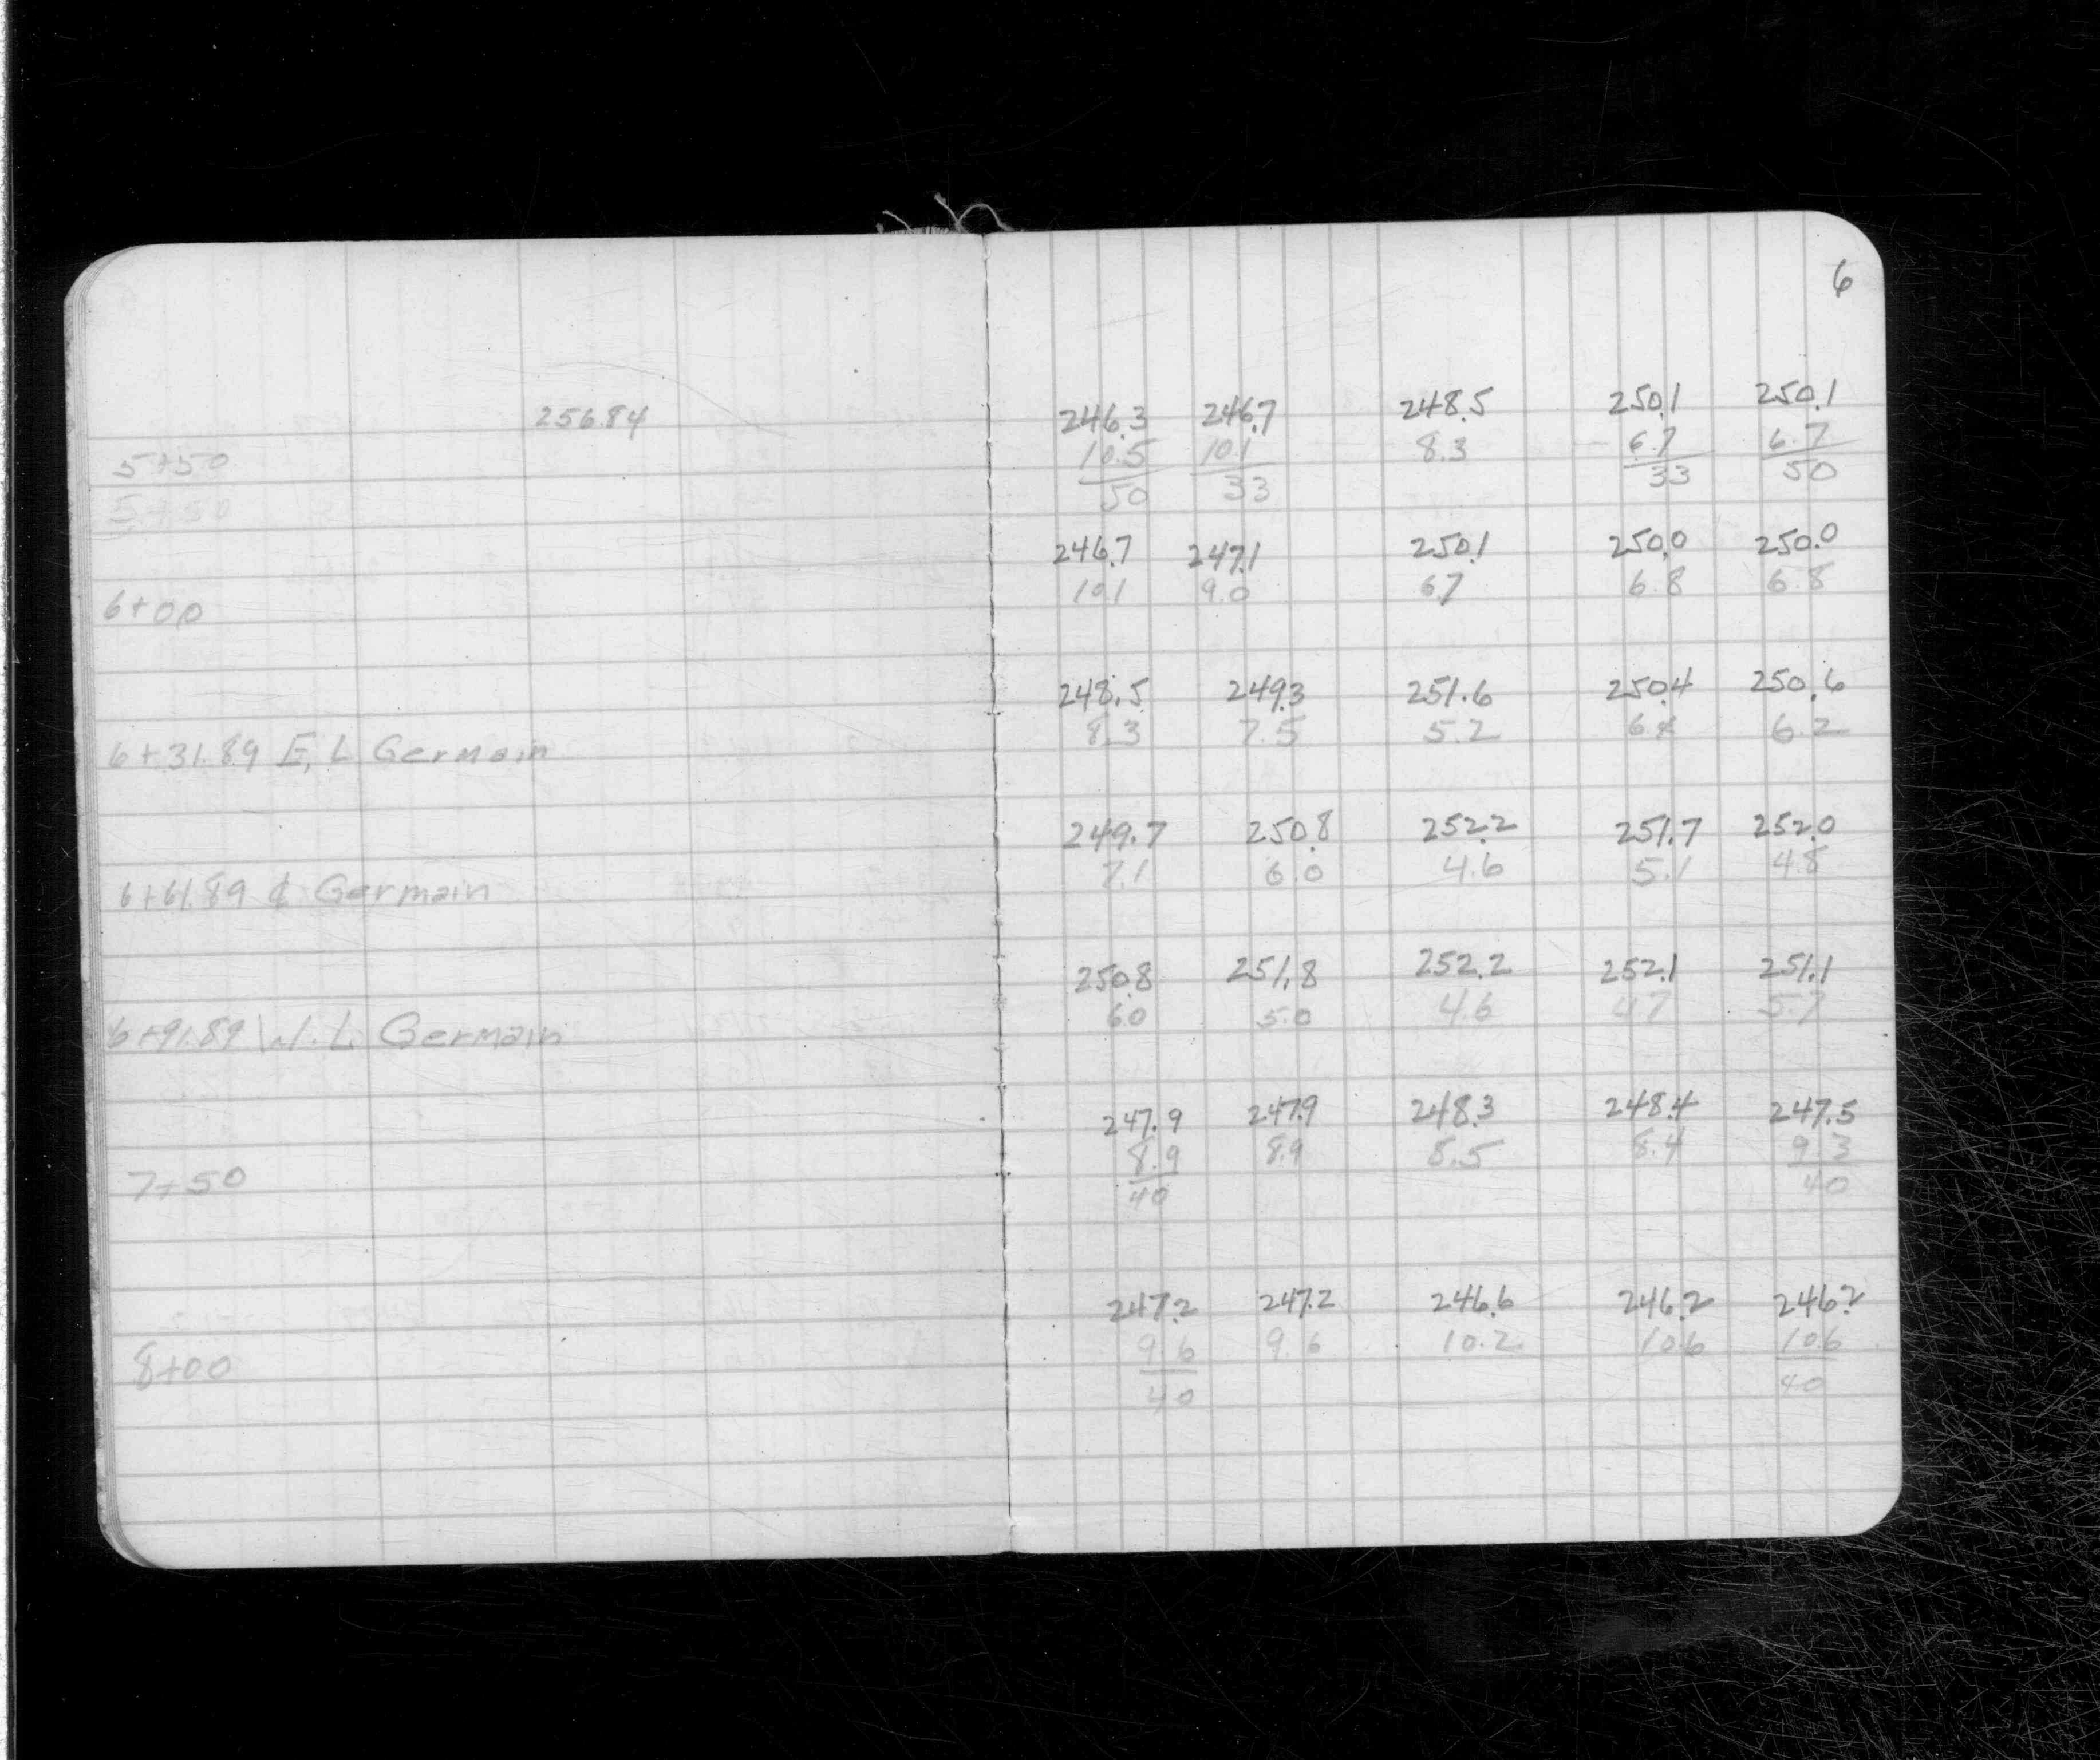 6
256.84 246.3 246.7 248.5 250.1 250.1
5+50 10.5 10.1 8.3 6.7 6.7
5+50 50 33 33 50
246.7 247.1 250.1 250.0 250.0
6+00 10.1 9.0 6.7 6.8 6.8
248.5 249.3 251.6 250.4 250.6
6+31.89 E, L Germain 8.3 7.5 5.2 6.4 6.2
249.7 250.8 252.2 251.7 252.0
6+61.89 ℄ Germain 7.1 6.0 4.6 5.1 4.8
250.8 251.8 252.2 252.1 251.1
6+91.89 W. L. Germain 6.0 5.0 4.6 4.7 5.7
247.9 247.9 248.3 248.4 247.5
7+50 8.9 8.9 8.5 8.4 9.3
40 40
247.2 247.2 246.6 246.2 246.2
8+00 9.6 9.6 10.2 10.6 10.6
40 40